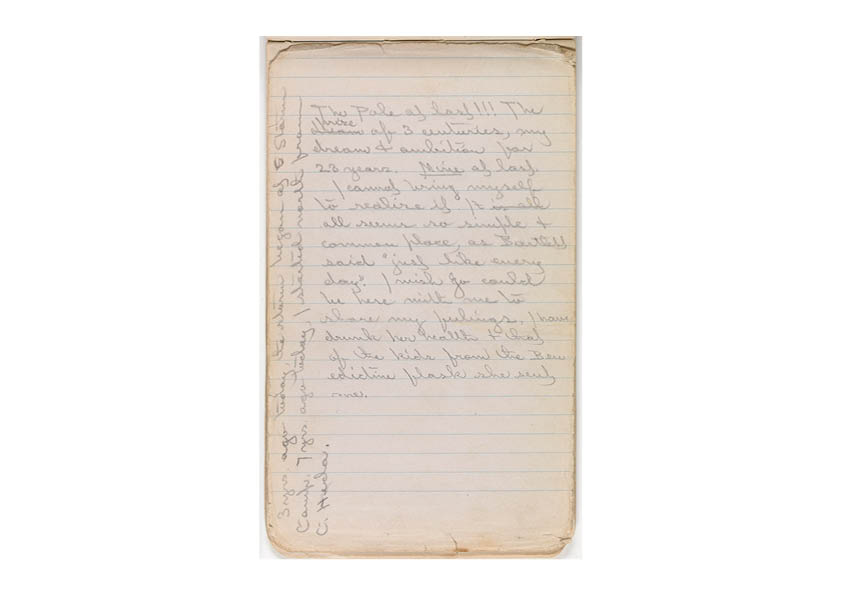 The Pole at last!!! The
prize
dream of 3 centuries, my
dream & ambition for
23 years. Mine at last.
I cannot bring myself
to realize it. It is all
all seems so simple &
common place, as Bartlett
said "just like every
day". I wish Jo could
be here with me to
share my feelings. I have
drunk her health & that
of the kids from the Ben
edictine flask she sent
me.
3 yrs. ago today, the storm began at Storm
Camp. 7 yrs. ago today, I started north from
C. Hecla.